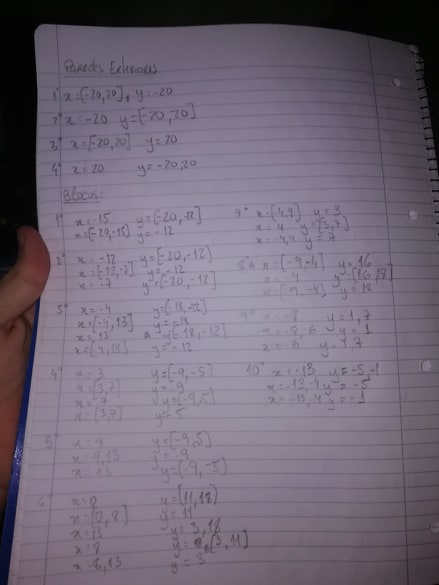 Paredes Exteriores
1º x=[-20,20], y=-20
2º x=-20 y=[-20,20]
3º x=[-20,20] y=20
4º x=20 y=-20,20
Blocos:
1º x=-15 y=[-20,-12]
x=[-20,-15] y=-12
2º x=-12 y=[-20,-12]
x=[-12,-7] y=-12
x=-7 y=[-20,-12]
3º x=-4 y=[-18,-12]
x=[-4,13] y=-18
x=13 y=[-18,-12]
x=[-4,13] y=-12
4º x=3 y=[-9,-5]
x=[3,7] y=-9
x=7 y=[-9,-5]
x=[3,7] y=-5
5º x=9 y=[-9,-5]
x=9,13 y=-9
x=13 y=[-9,-5]
6º x=0 y=[11,18]
x=[0,8] y=11
x=13 y=3,18
x=8 y=[3,11]
x=8,13 y=3
7º x=[-4,4] y=3
x=4 y=[3,7]
x=-4,4 y=7
8º x=[-9,-4] y=16
x=-4 y=[16,18]
x=[-9,-4] y=18
9º x=-8 y=1,7
x=-8,-6 y=1
x=-6 y=1,7
10º x=-13 y=-5,-1
x=-13,-4 y=-5
x=-13,-4 y=-1